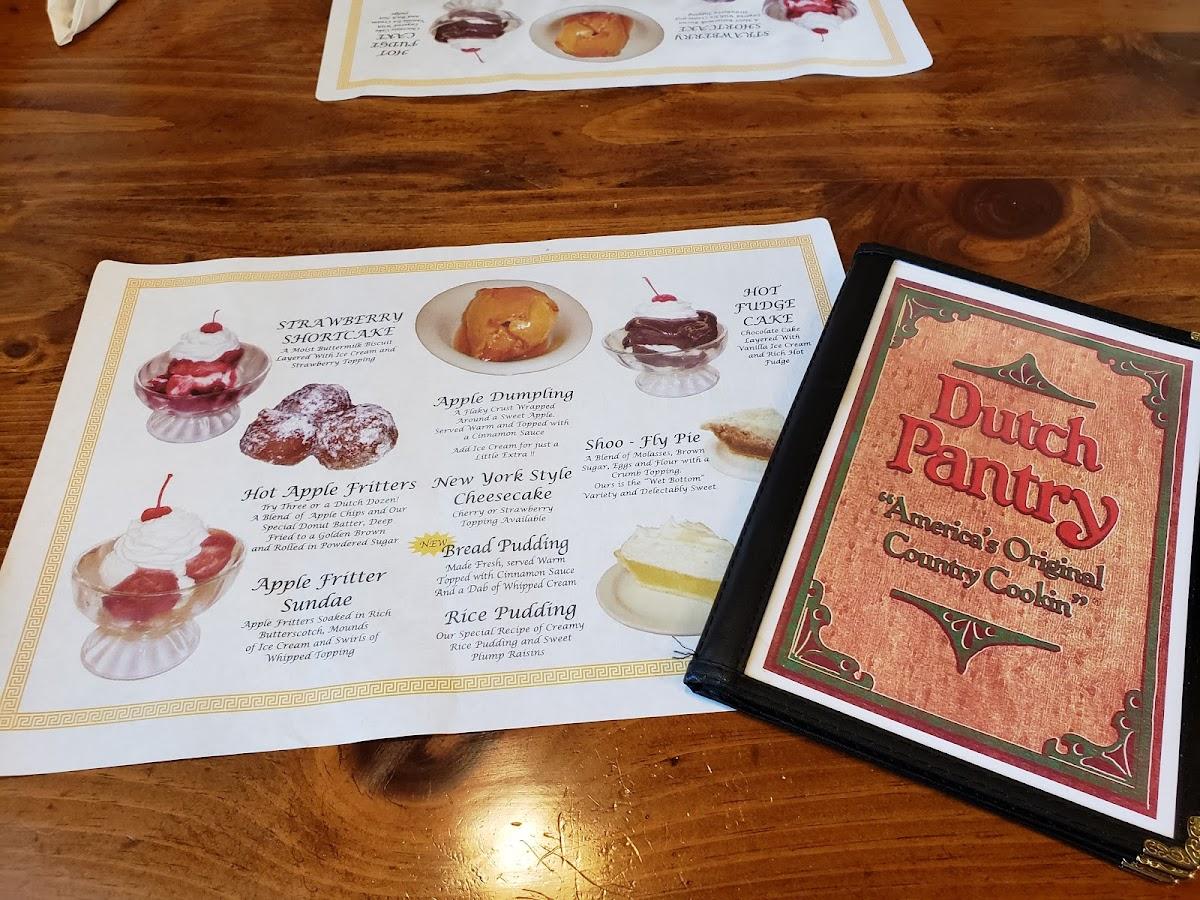 HOT
FUDGE
CAKE
Chocolate Cake
Layered With
Vanilla Ice Cream
and Rich Hot
Fudge
STRAWBERRY
SHORTCAKE
A Moist Buttermilk Biscuit
Layered With Ice Cream and
Strawberry Topping
STRAWBERRY
SHORTCAKE
A Moist Buttermilk Biscuit
Layered With Ice Cream and
Strawberry Topping
Hot Apple Fritters
Try Three or a Dutch Dozen!
A Blend of Apple Chips and Our
Special Donut Batter, Deep
Fried to a Golden Brown
and Rolled in Powdered Sugar
Apple Fritter
Sundae
Apple Fritters Soaked in Rich
Butterscotch, Mounds
of Ice Cream and Swirls of
Whipped Topping
Apple Dumpling
A Flaky Crust Wrapped
Around a Sweet Apple.
Served Warm and Topped with
a Cinnamon Sauce
Add Ice Cream for just a
Little Extra !!
New York Style
Cheesecake
Cherry or Strawberry
Topping Available
NEW
Bread Pudding
Made Fresh, served Warm
Topped with Cinnamon Sauce
And a Dab of Whipped Cream
Rice Pudding
Our Special Recipe of Creamy
Rice Pudding and Sweet
Plump Raisins
HOT
FUDGE
CAKE
Chocolate Cake
Layered With
Vanilla Ice Cream
and Rich Hot
Fudge
Shoo - Fly Pie
A Blend of Molasses, Brown
Sugar, Eggs and Flour with a
Crumb Topping.
Ours is the "Wet Bottom"
Variety and Delectably Sweet
Dutch
Pantry
"America's Original
Country Cookin"